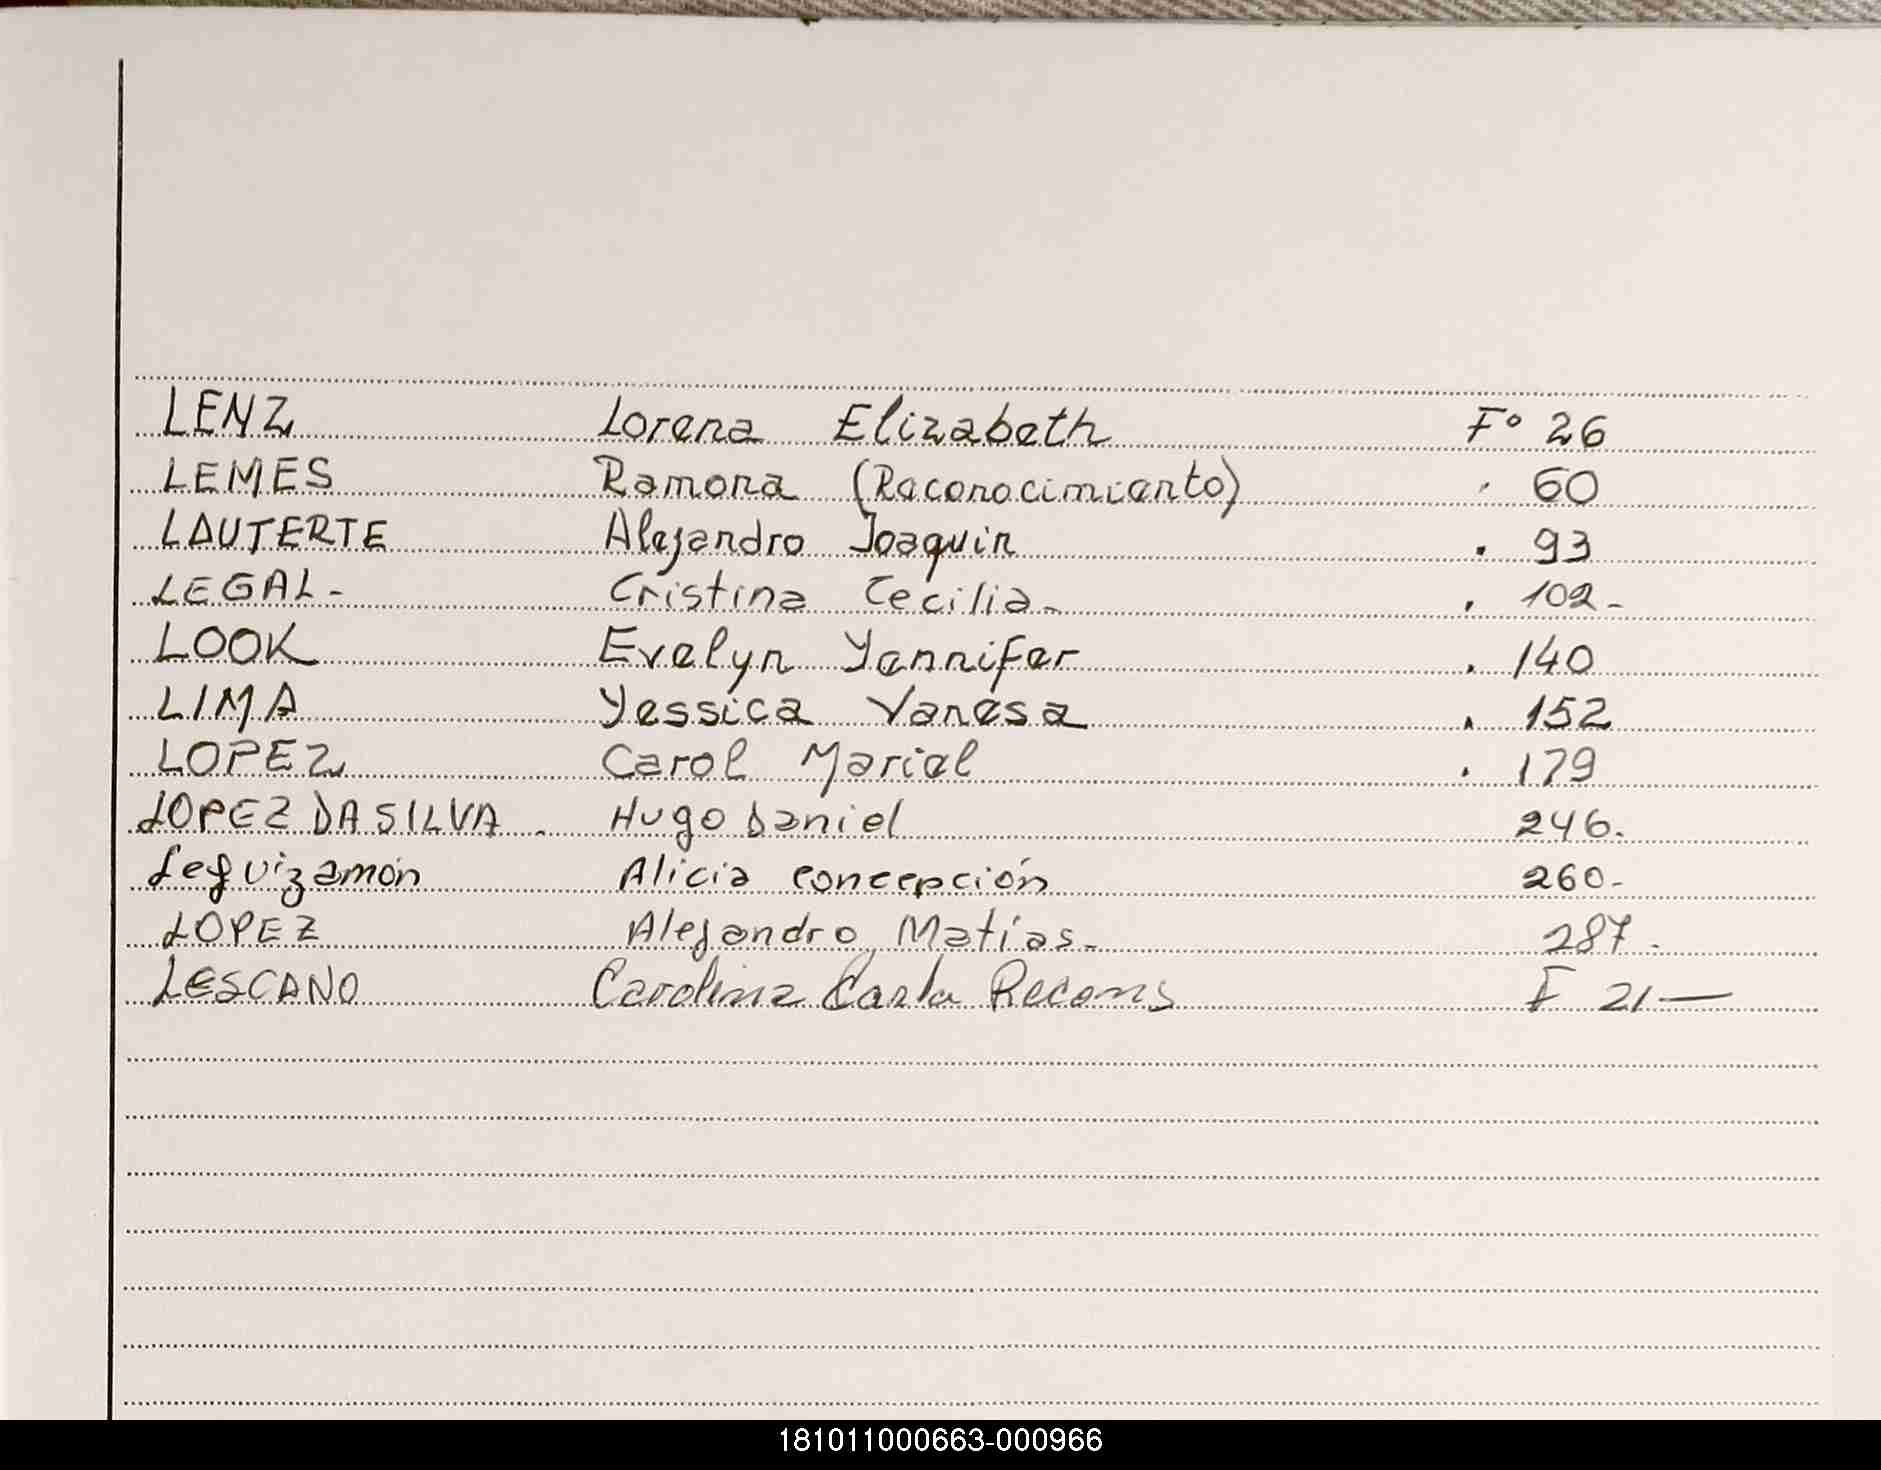 LENZ Lorena Elizabeth Fº 26
LEMES Ramona (Reconocimiento) " 60
LAUTERTE Alejandro Joaquin " 93
LEGAL- Cristina Cecilia- " 102-
LOOK Evelyn Yennifer " 140
LIMA Yessica Vanesa " 152
LOPEZ Carol Mariel " 179
LOPEZ DA SILVA. Hugo Daniel 246.
Leguizamón Alicia Concepción 260-
LOPEZ Alejandro Matías- 287-
LESCANO Carolina Carla Recons F 21—
181011000663-000966